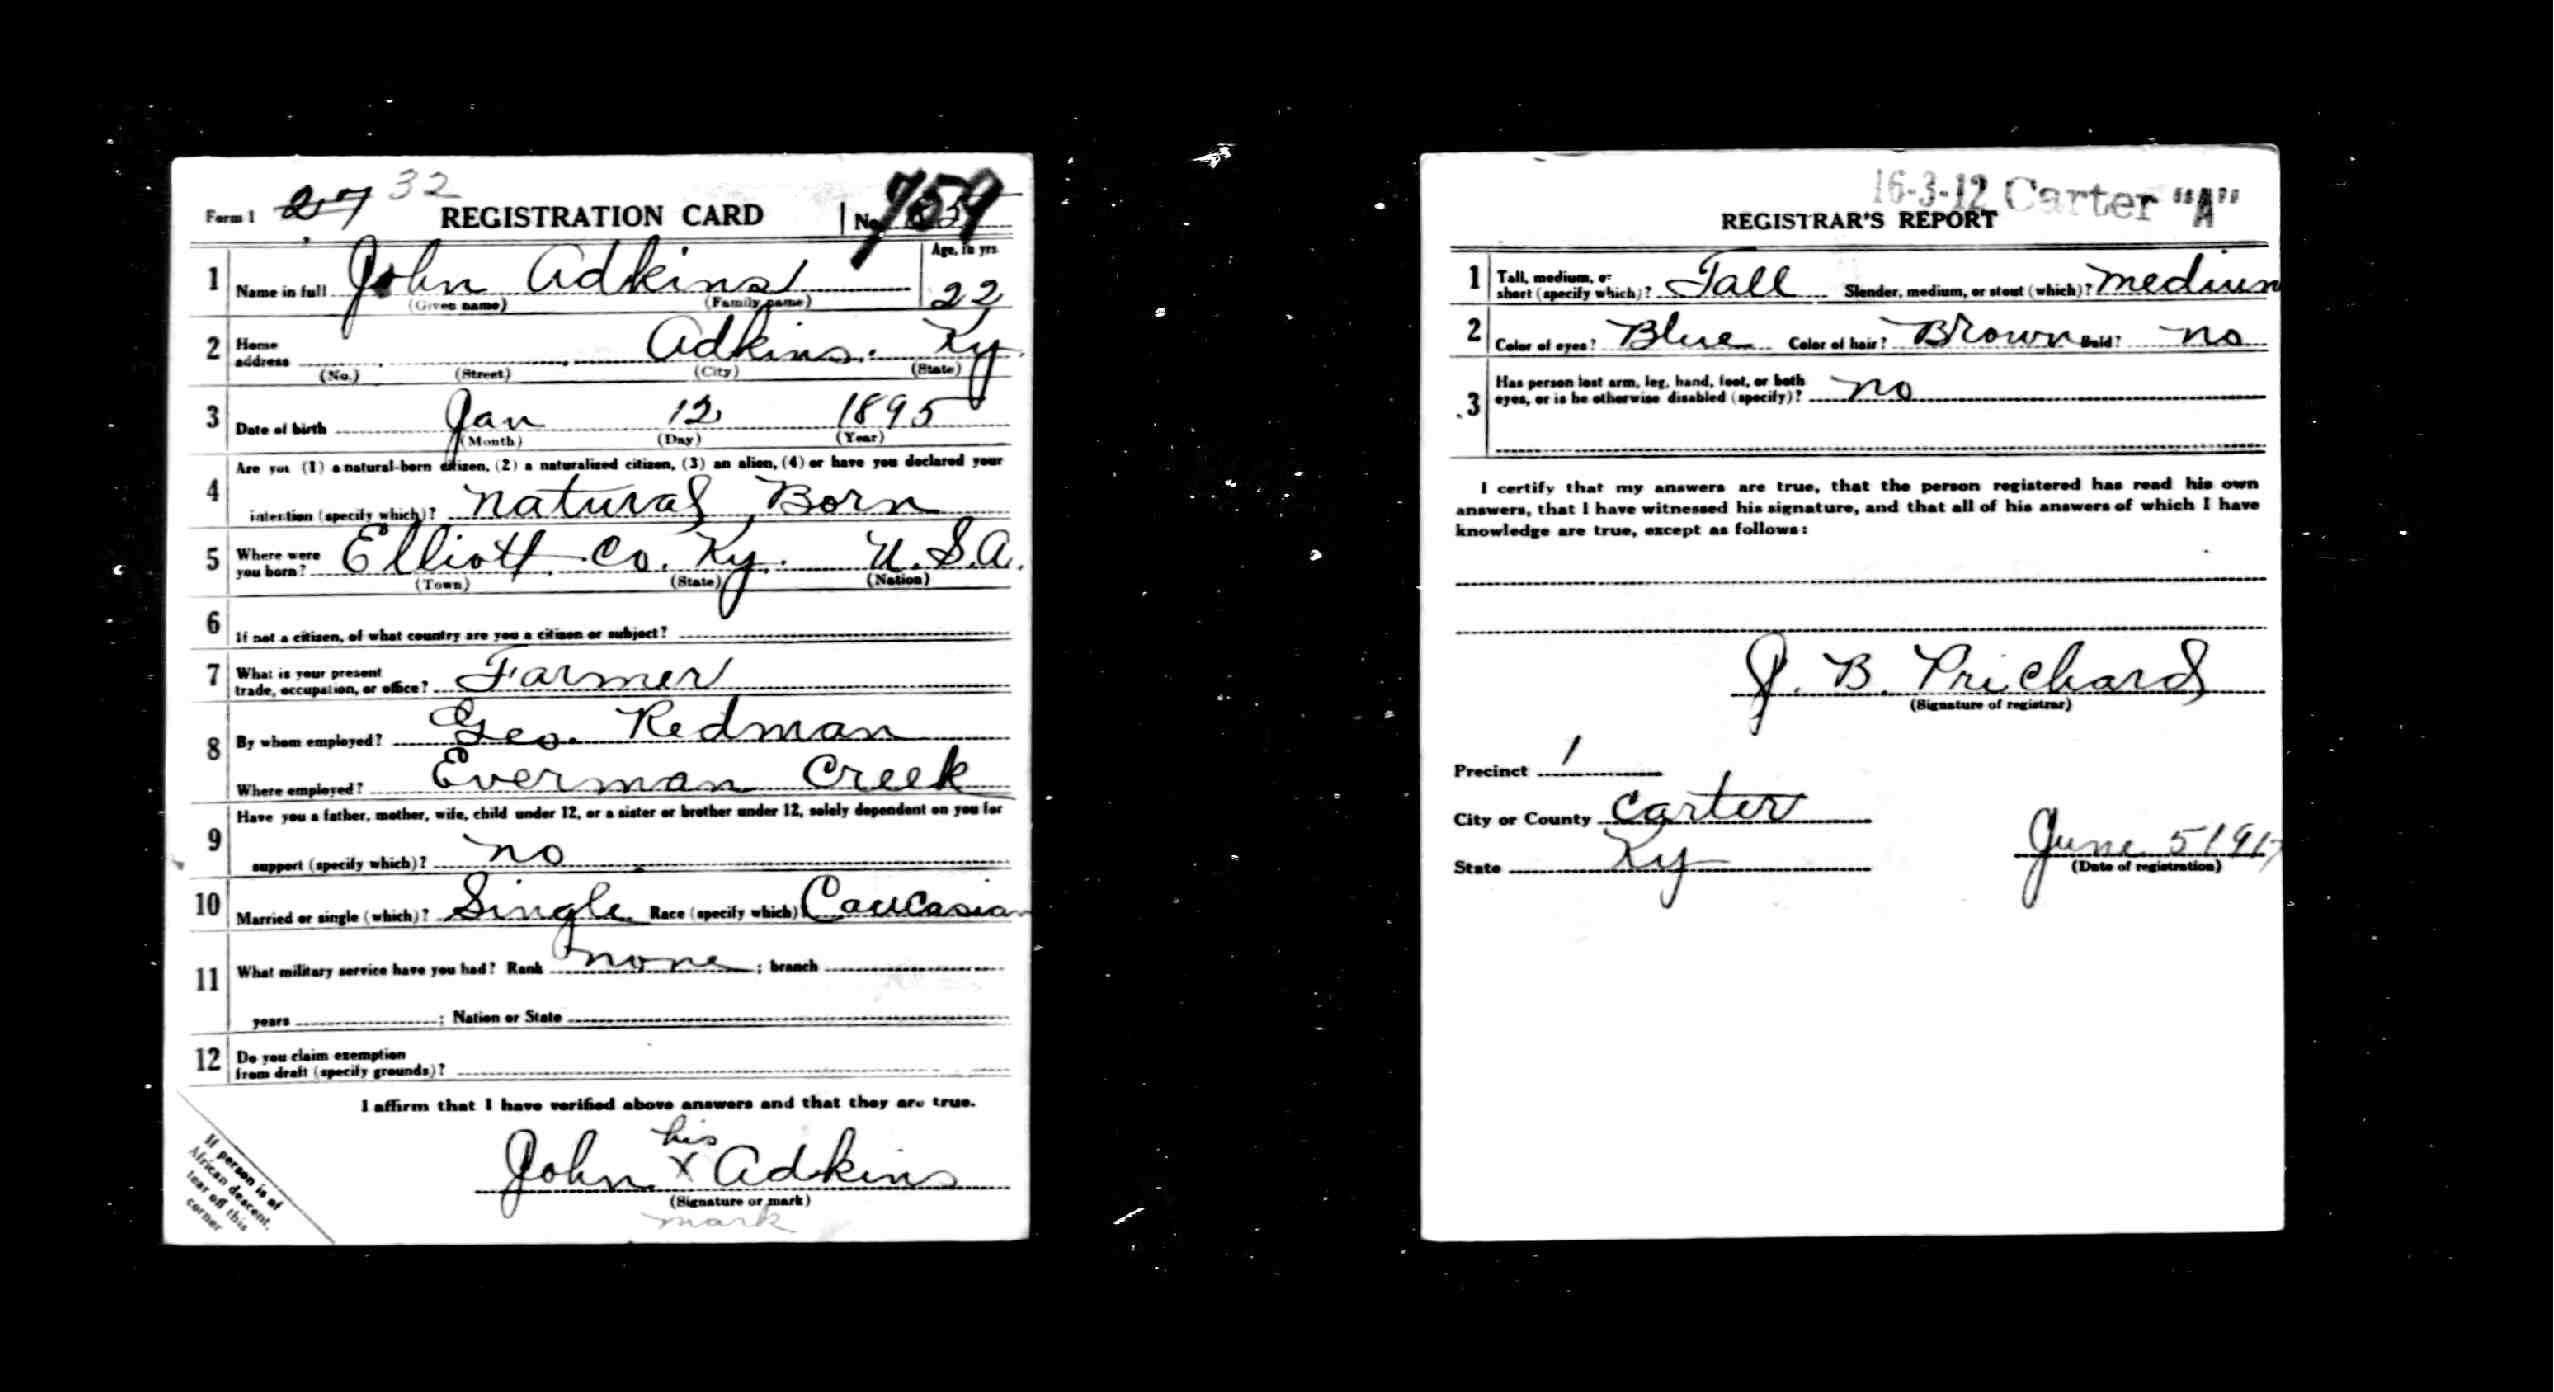 Form 1 27 32 REGISTRATION CARD No.
Age, in yrs.
1 Name in full John Adkins 22
(Given name) (Family name)
2 Home address Adkins. Ky.
(No.) (Street) (City) (State)
3 Date of birth Jan 12 1895
(Month) (Day) (Year)
4 Are you (1) a natural-born citizen, (2) a naturalized citizen, (3) an alien, (4) or have you declared your
intention (specify which)? Natural Born
5 Where were you born? Elliott Co. Ky. U.S.A.
(Town) (State) (Nation)
6 If not a citizen, of what country are you a citizen or subject?
7 What is your present trade, occupation, or office? Farmer
8 By whom employed? Geo. Redman
Where employed? Everman Creek
9 Have you a father, mother, wife, child under 12, or a sister or brother under 12, solely dependent on you for
support (specify which)? no
10 Married or single (which)? Single Race (specify which) Caucasian
11 What military service have you had? Rank none ; branch
years ; Nation or State
12 Do you claim exemption from draft (specify grounds)?
I affirm that I have verified above answers and that they are true.
his
John x Adkins
(Signature or mark)
mark
If person is of
African descent,
tear off this
corner
16-3-12 Carter "A"
REGISTRAR'S REPORT
1 Tall, medium, or short (specify which)? Tall Slender, medium, or stout (which)? medium
2 Color of eyes? Blue Color of hair? Brown Bald? no
3 Has person lost arm, leg, hand, foot, or both eyes, or is he otherwise disabled (specify)? no
I certify that my answers are true, that the person registered has read his own
answers, that I have witnessed his signature, and that all of his answers of which I have
knowledge are true, except as follows:
J. B. Prichard
(Signature of registrar)
Precinct 1
City or County Carter
State Ky June 5 1917
(Date of registration)